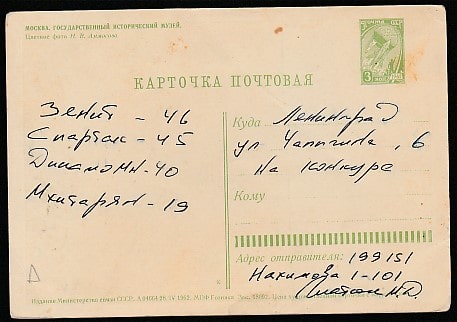 МОСКВА. ГОСУДАРСТВЕННЫЙ ИСТОРИЧЕСКИЙ МУЗЕЙ.
Цветное фото
КАРТОЧКА ПОЧТОВАЯ
Зенит - 46
Спартак - 45
Динамо МН-40
Мхитарян - 19
Куда Ленинград
ул Чапыгина, 6
на конкурс
Кому
Адрес отправителя: 199151
Нахимова 1-101
Издание Министерства связи СССР.